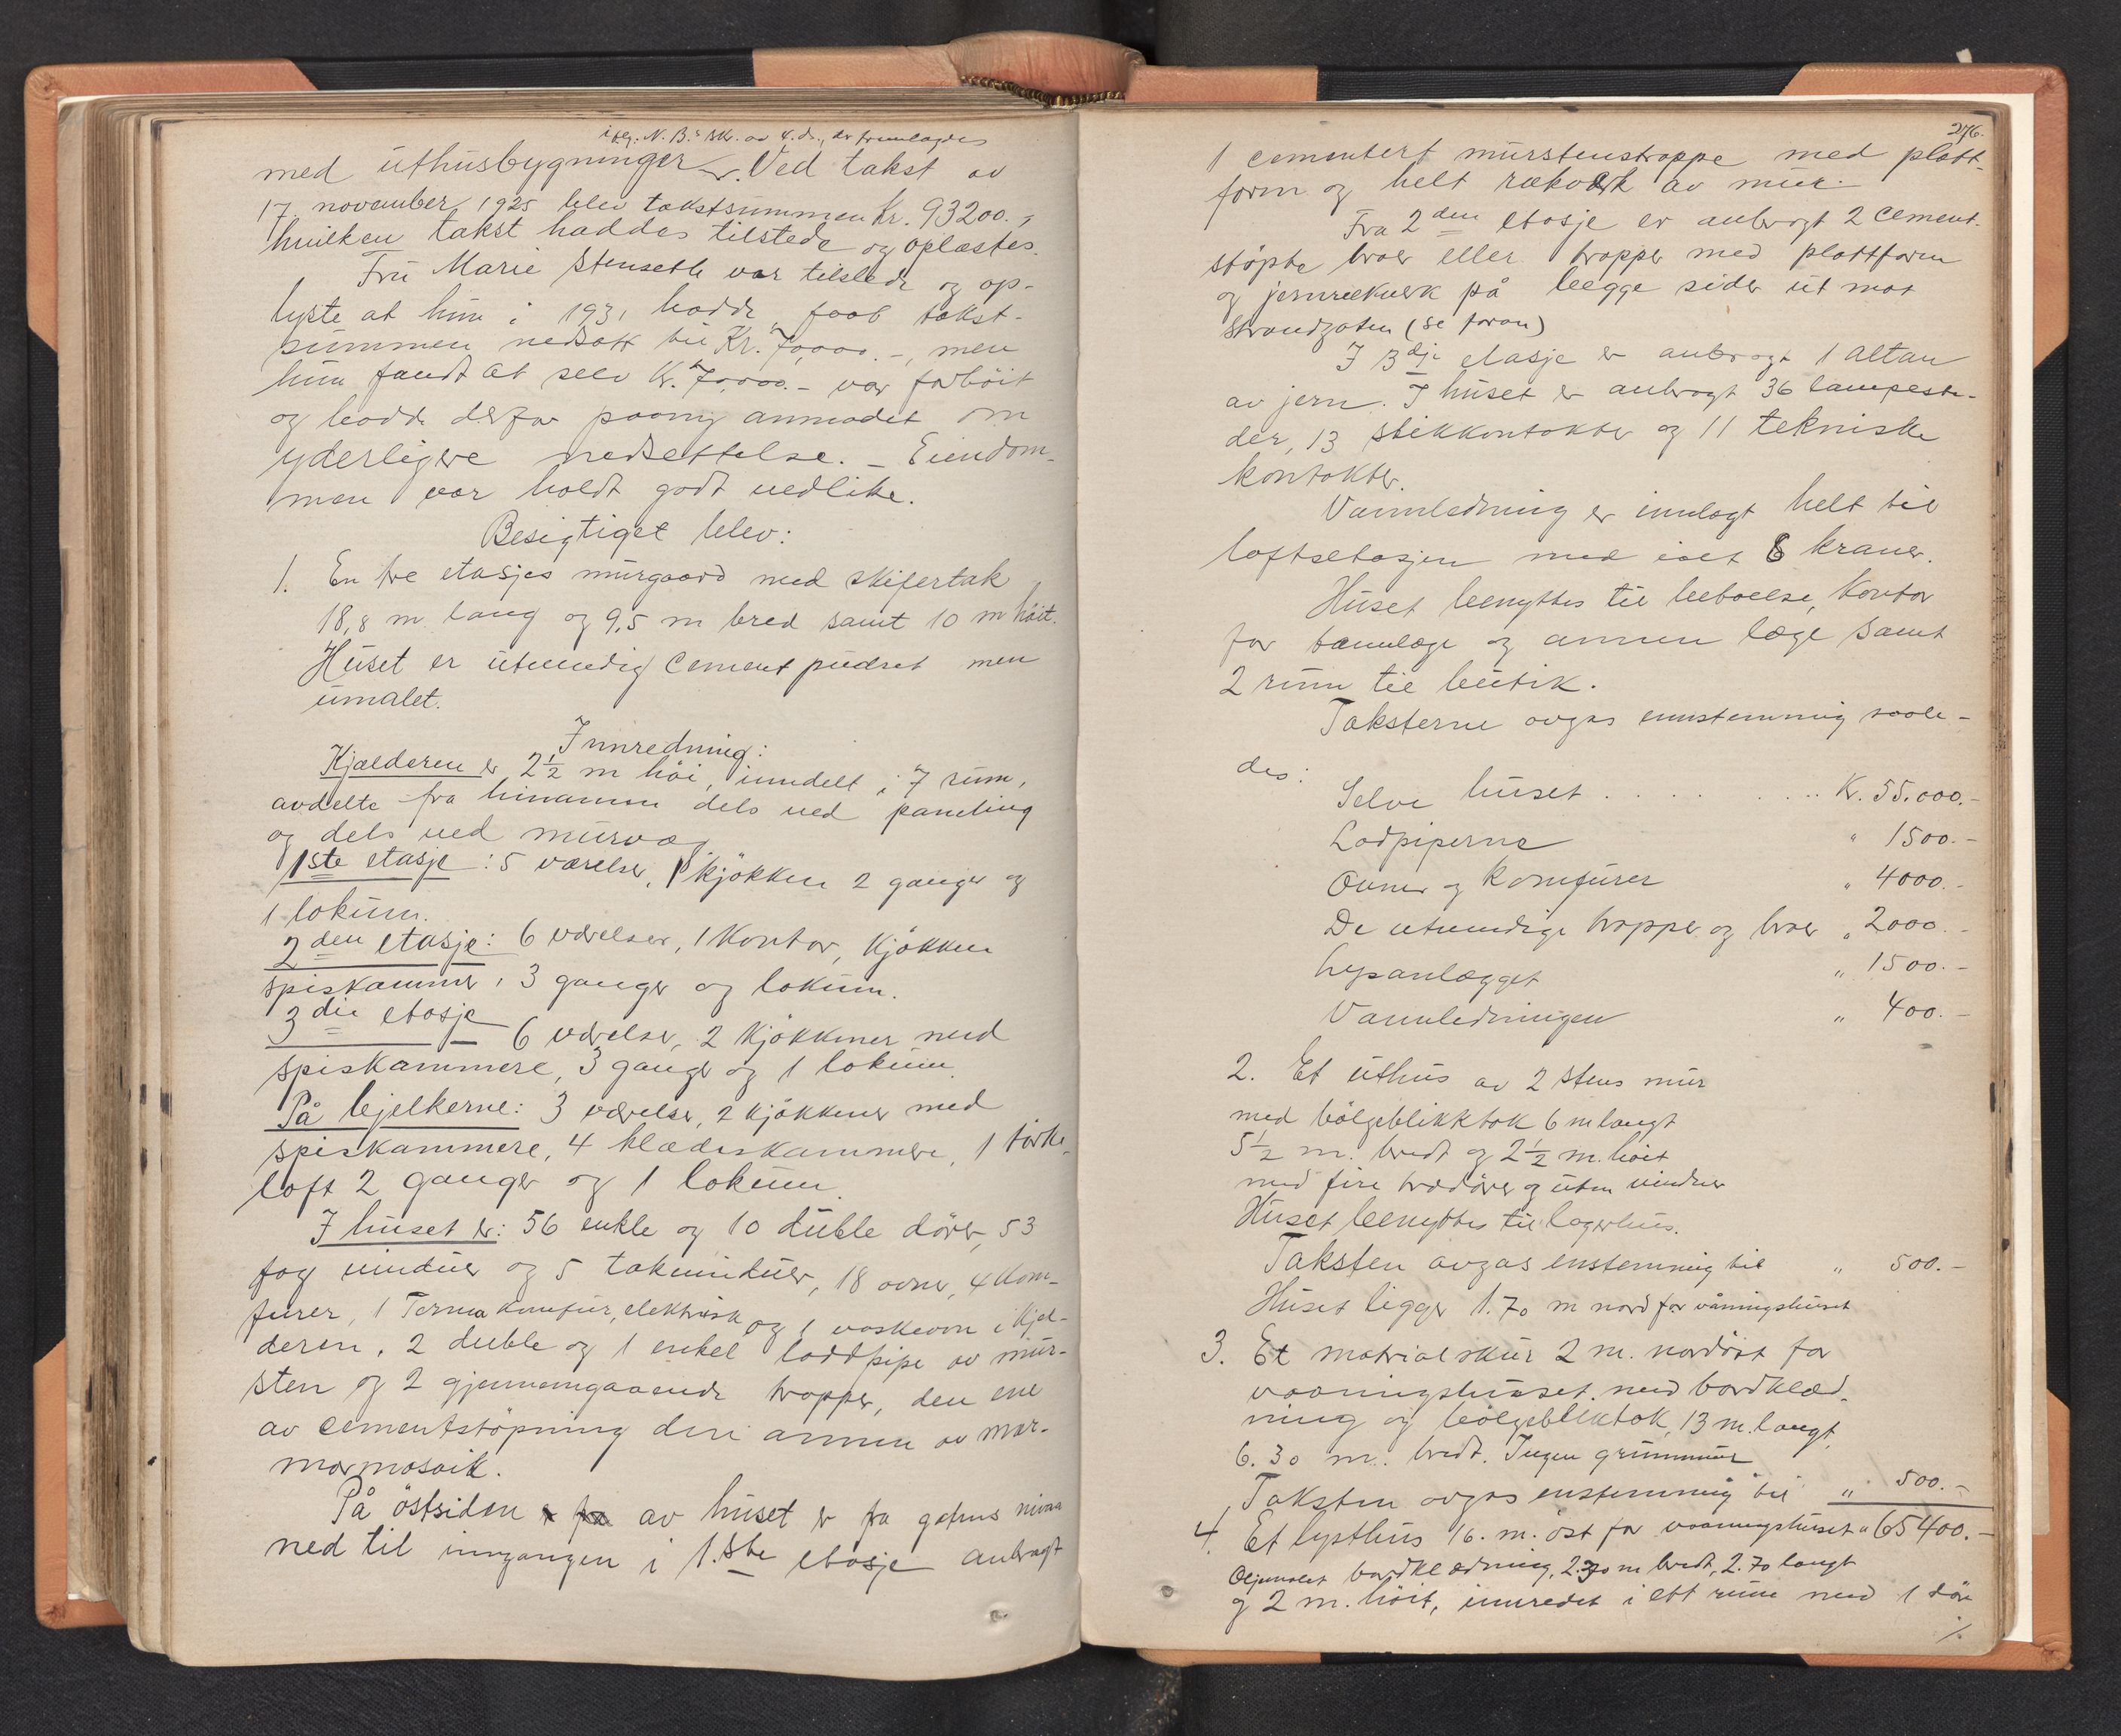 iflg. N. B.s skr. av 4. ds., der fremlagdes
med uthusbygninger. Ved takst av
17. november 1925 blev takstsummen Kr. 93200.-,
hvilken takst haddes tilstede og oplæstes.
Fru Marie Stenseth var tilstede og op-
lyste at hun i 1931 hadde faat takst-
summen nedsatt til Kr. 70,000.-, men
hun fandt at selv Kr. 70,000.- var forhöit
og hadde derfor paany anmodet om
yderligere nedsettelse. - Eiendom-
men var holdt godt vedlike.
Besigtiget blev:
1. En tre etasjes murgaard med skifertak
18,8 m lang og 9,5 m bred samt 10 m höit.
Huset er utvendig cement pudset men
umalet.
Innredning:
Kjælderen er 2½ m höi, inndelt i 7 rum,
avdelte fra hinannen dels ved paneling
og dels ved murvæg.
1ste etasje: 5 værelser, 1 kjökken 2 ganger og
1 lokum.
2den etasje: 6 værelser, 1 kontor, kjökken
spiskammer, 3 ganger og lokum.
3die etasje 6 værelser, 2 kjökkener med
spiskammere, 3 ganger og 1 lokum.
På bjelkerne: 3 værelser, 2 kjökkener med
spiskammere, 4 klædeskammere, 1 törke-
loft 2 ganger og 1 lokum.
I huset er: 56 enkle og 10 duble dörer, 53
fag vinduer og 5 takvinduer, 18 ovner, 4 kom-
furer, 1 Terma komfur, elektrisk og 1 vaskeovn i kjel-
deren, 2 duble og 1 enkel loddpipe av mur-
sten og 2 gjennemgaaende trapper, den ene
av cementstöpning den annen av mar-
mormosaik.
På östsiden av huset er fra gatens nivaa
ned til inngangen i 1.ste etasje anbragt
276.
1 cementert murstenstrappe med platt-
form og helt rækverk av mur.
Fra 2den etasje er anbragt 2 cement-
stöpte broer eller trapper med plattform
og jernrekverk på begge sider ut mot
Strandgaten (se foran)
I 3dje etasje er anbragt 1 altan
av jern. I huset er anbragt 36 lampeste-
der, 13 stikkontakter og 11 tekniske
kontakter.
Vannledning er innlagt helt til
loftsetasjen med ialt 6 kraner.
Huset benyttes til beboelse, kontor
for tannlæge og annen læge samt
2 rum til butik.
Taksterne avgas ennstemmig saale-
des:
Selve huset . . . . . . . Kr. 55.000.-
Lodpiperne " 1500.-
Ovner og komfurer " 4000.-
De utvendige trapper og broer " 2000.-
Lysanlægget " 1500.-
Vannledningen " 400.-
2. Et uthus av 2 stens mur
med bölgeblikktak 6 m langt
5½ m. bredt og 2½ m. höit
med fire trædörer og uten vinduer
Huset benyttes til lagerhus.
Taksten avgas enstemmig til " 500.-
Huset ligger 1.70 m nord for våningshuset
3. Et matrialskur 2 m. nordöst for
vaaningshuset med bordklæd-
ning og bölgebliktak, 13 m. langt,
6.30 m. bredt. Ingen grunnmur
Taksten avgas enstemmig til " 500.-
4. Et lysthus 16. m. öst for vaaningshuset " 65400.-
Oljemalet bordklædning, 2.30 m bredt, 2.70 langt
og 2 m. höit, innredet i ett rum med 1 dör
./.